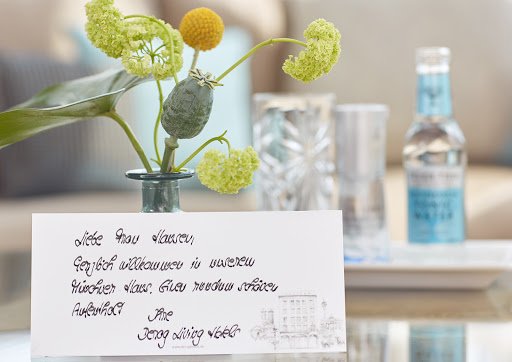 Liebe Frau Hansen,
Herzlich willkommen in unserem
Münchner Haus. Einen rundum schönen
Aufenthalt
Ihre
Derag Living Hotels
WATER